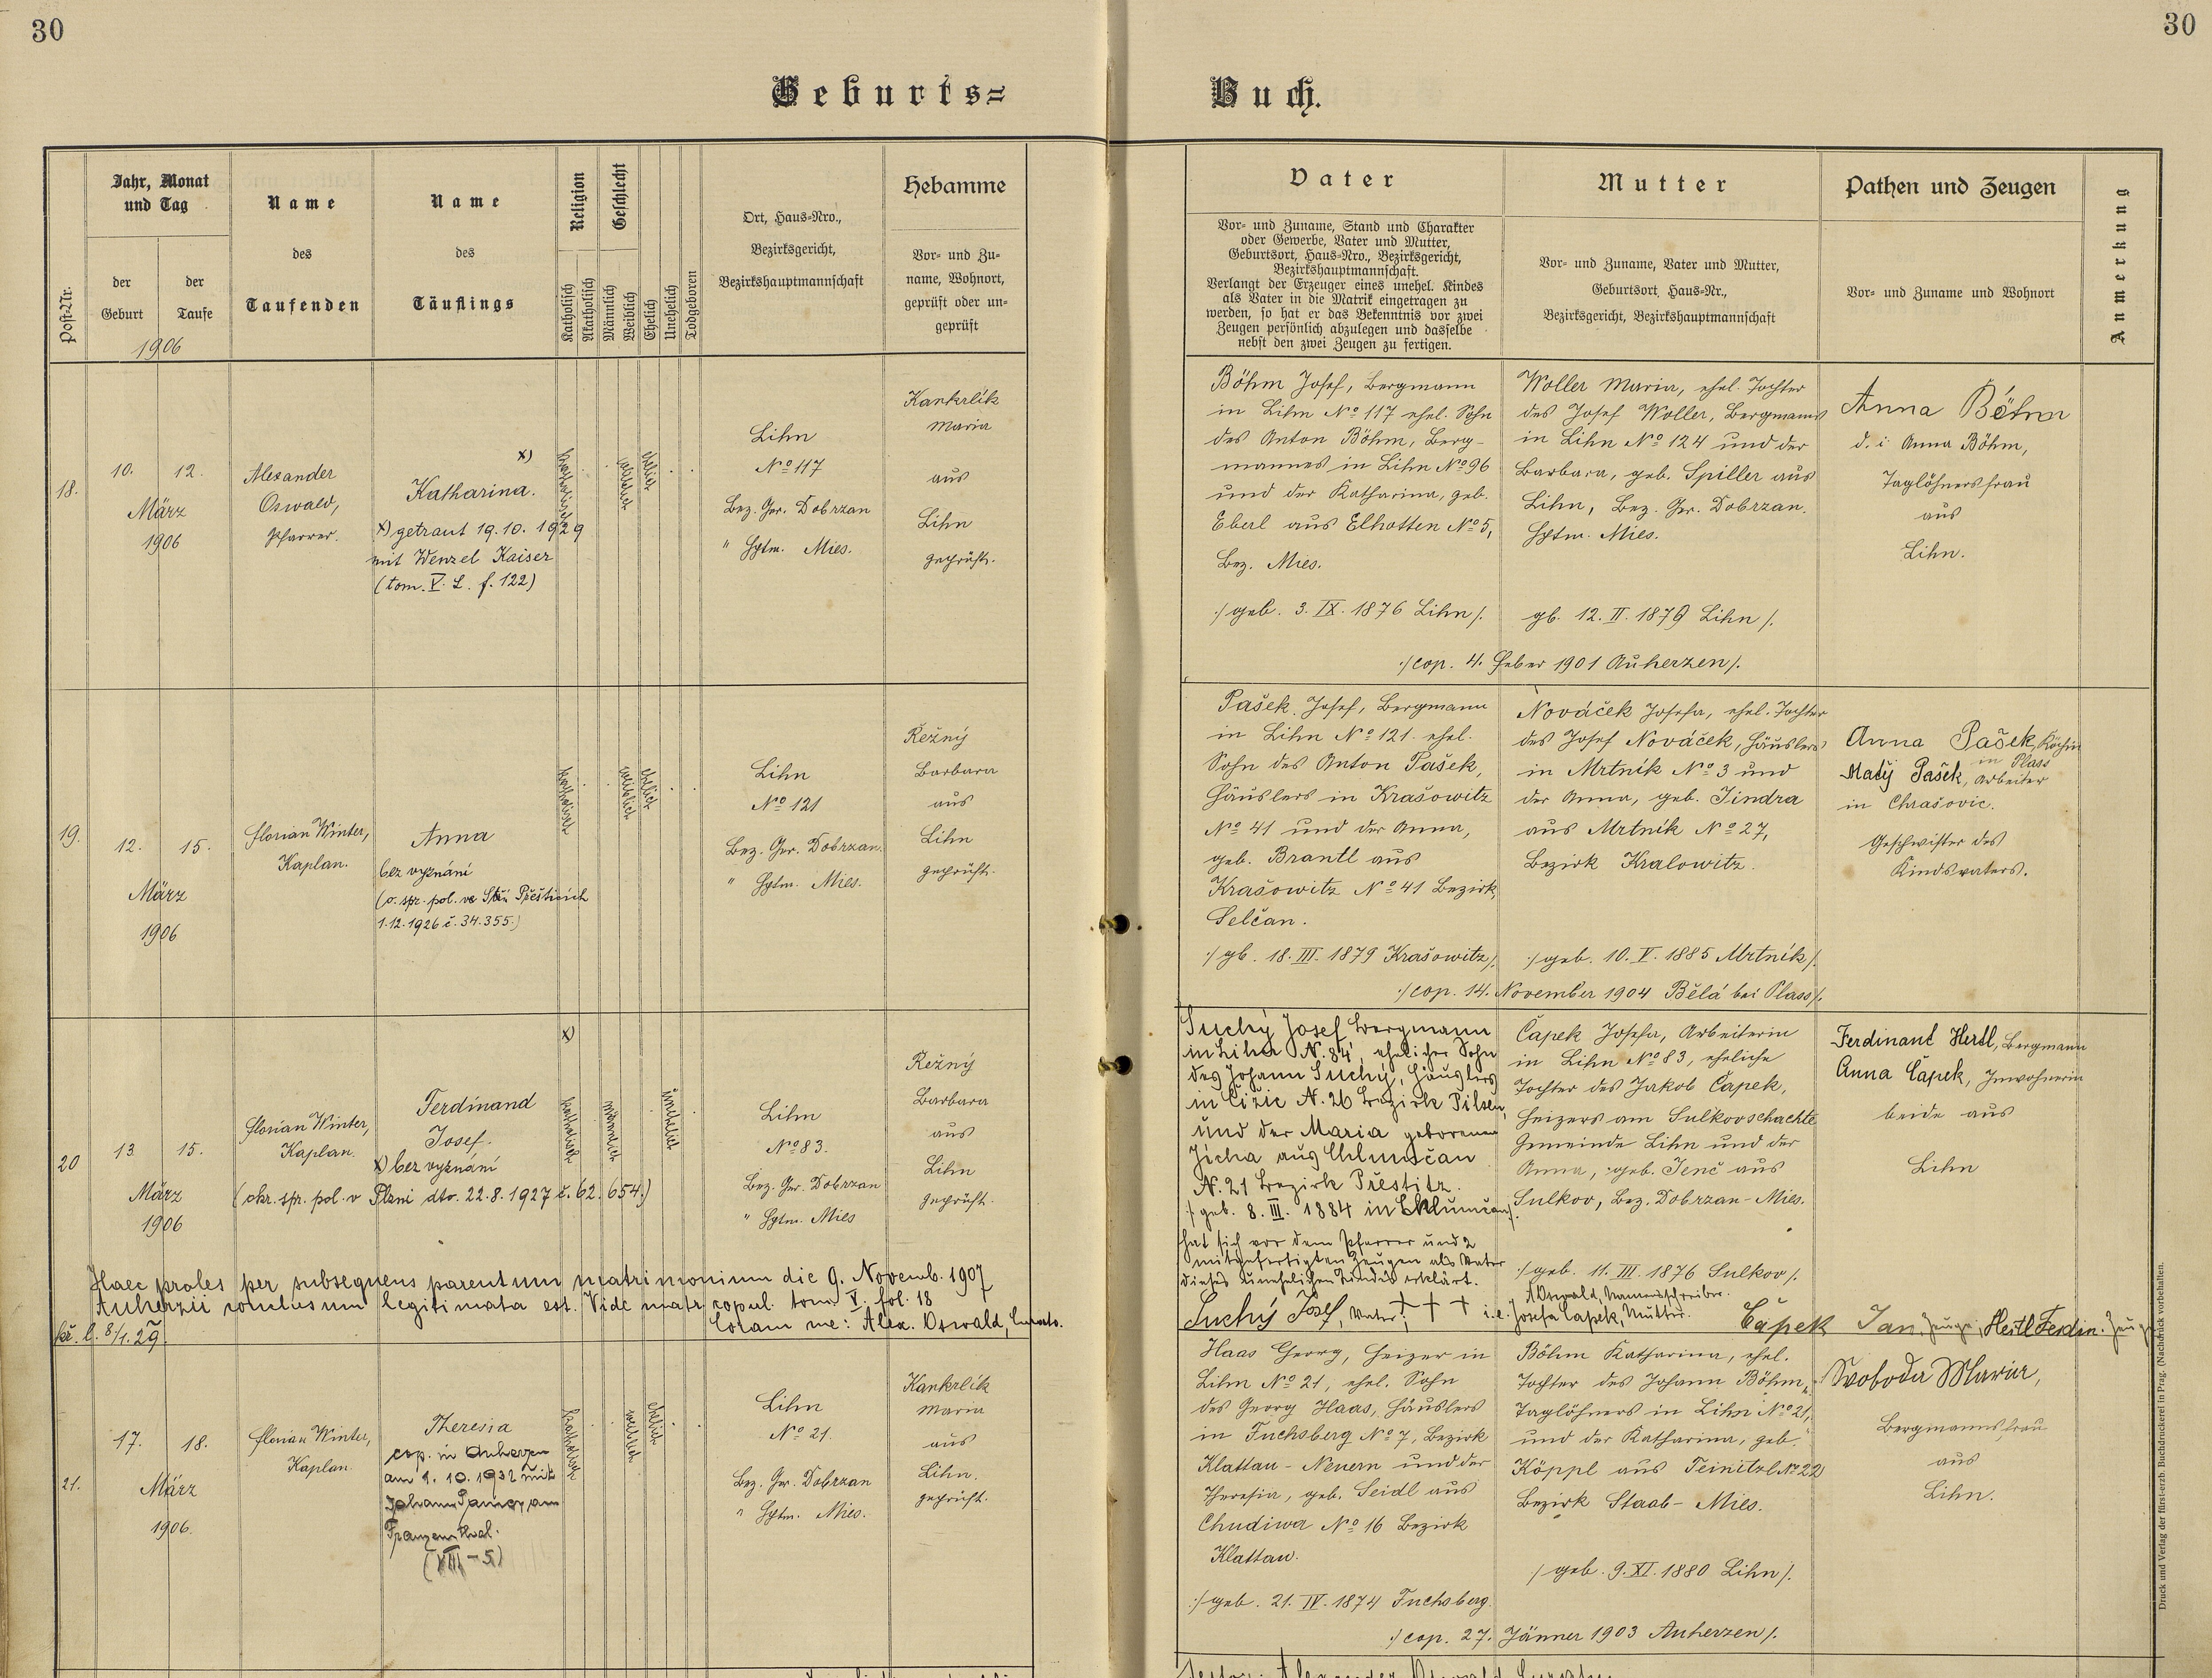 30
30
Geburts=
Buch.
Post-Nr.
Jahr, Monat
und Tag
der
Geburt
der
Taufe
1906
Name
des
Taufenden
Name
des
Täuflings
Religion
Katholisch
Akatholisch
Geschlecht
Männlich
Weiblich
Ehelich
Unehelich
Todgeboren
Ort, Haus-Nro.,
Bezirksgericht,
Bezirkshauptmannschaft
Hebamme
Vor- und Zu-
name, Wohnort,
geprüft oder un-
geprüft
Vater
Vor- und Zuname, Stand und Charakter
oder Gewerbe, Vater und Mutter,
Geburtsort, Haus-Nro., Bezirksgericht,
Bezirkshauptmannschaft.
Verlangt der Erzeuger eines unehel. Kindes
als Vater in die Matrik eingetragen zu
werden, so hat er das Bekenntnis vor zwei
Zeugen persönlich abzulegen und dasselbe
nebst den zwei Zeugen zu fertigen.
Mutter
Vor- und Zuname, Vater und Mutter,
Geburtsort, Haus-Nr.,
Bezirksgericht, Bezirkshauptmannschaft
Pathen und Zeugen
Vor- und Zuname und Wohnort
Anmerkung
18.
10. 12.
März
1906
Alexander
Oswald,
Pfarrer.
x)
Katharina.
x) getraut 19.10.1929
mit Wenzel Kaiser
(tom. V. L. f. 122)
katholisch
weiblich
ehelich
Lihn
No 117
Bez. Ger. Dobrzan
" Hptm. Mies.
Kankrlik
Maria
aus
Lihn
geprüft.
Böhm Josef, Bergmann
in Lihn No 117 ehel. Sohn
des Anton Böhm, Berg-
mannes in Lihn No 96
und der Katharina, geb.
Eberl aus Elhotten No 5,
Bez. Mies.
:/ geb. 3. IX. 1876 Lihn /.
Woller Maria, ehel. Tochter
des Josef Woller, Bergmanns
in Lihn No 124 und der
Barbara, geb. Spiller aus
Lihn, Bez. Ger. Dobrzan.
Hptm. Mies.
gb. 12. II. 1879 Lihn /.
:/ cop. 4. Feber 1901 Auherzen /.
Anna Böhm
d. i. Anna Böhm,
Taglöhnersfrau
aus
Lihn.
19.
12. 15.
März
1906
Florian Winter,
Kaplan.
Anna
bez vyznání
(o. spr. pol. ve Přešticích
1.12.1926 č. 34.355.)
katholisch
weiblich
ehelich
Lihn
No 121
Bez. Ger. Dobrzan.
" Hptm. Mies.
Řežný
Barbara
aus
Lihn
geprüft.
Pašek Josef, Bergmann
in Lihn No 121 ehel.
Sohn des Anton Pašek,
Häuslers in Krašowitz
No 41 und der Anna,
geb. Brantl aus
Krašowitz No 41 Bezirk
Selčan.
:/ gb. 18. III. 1879 Krašowitz /.
Nováček Josefa, ehel. Tochter
des Josef Nováček, Häuslers
in Mrtník No 3 und
der Anna, geb. Jindra
aus Mrtník No 27,
Bezirk Kralowitz.
:/ geb. 10. V. 1885 Mrtník /.
:/ cop. 14. November 1904 Bělá bei Plass /.
Anna Pašek, Köchin
in Plass
Matěj Pašek, Arbeiter
in Chrašovic.
Geschwister des
Kindsvaters.
20
13 15.
März
1906
Florian Winter,
Kaplan.
x)
Ferdinand
Josef.
x) bez vyznání
(okr. spr. pol. v Plzni dto. 22.8.1927 č. 62.654.)
katholisch
männlich
unehelich
Lihn
No 83.
Bez. Ger. Dobrzan
" Hptm. Mies
Řežný
Barbara
aus
Lihn
geprüft.
Haec proles per subsequens parentum matrimonium die 9. Novemb. 1907
Auherzii conclusum legitimata est. Vide matr. copul. tom. V. fol. 18
Coram me: Alex. Oswald, Curato.
8/1. 29.
Suchý Josef Bergmann
in Lihn N. 84, ehelicher Sohn
des Johann Suchý, Häuslers
in Čižic N. 26 Bezirk Pilsen,
und der Maria geborenen
Jícha aus Chlumčan
N. 21 Bezirk Přestitz.
:/ geb. 8. III. 1884 in Chlumčan /.
hat sich vor dem Pfarrer und 2
mitgefertigten Zeugen als Vater
dieses unehelichen Kindes erklärt.
Čapek Josefa, Arbeiterin
in Lihn No 83, eheliche
Tochter des Jakob Čapek,
Heizers am Sulkovschachte
Gemeinde Lihn und der
Anna, geb. Jenč aus
Sulkov, Bez. Dobrzan-Mies.
:/ geb. 11. III. 1876 Sulkov /.
A Oswald, Namensschreiber.
Suchý Josef, Vater; + + + i.e. Josefa Čapek, Mutter. Čapek Jan, Zeuge, Hertl Ferdin. Zeuge
Ferdinant Hertl, Bergmann
Anna Čapek, Inwohnerin
beide aus
Lihn
21.
17. 18.
März
1906.
Florian Winter,
Kaplan.
Theresia
cop. in Auherzen
am 1. 10. 1932 mit
Johann aus
Franzensthal.
(VIII-5)
katholisch
weiblich
ehelich
Lihn
No 21.
Bez. Ger. Dobrzan
" Hptm. Mies.
Kankrlik
Maria
aus
Lihn.
geprüft.
Haas Georg, Heizer in
Lihn No 21, ehel. Sohn
des Georg Haas, Häuslers
in Fuchsberg No 7, Bezirk
Klattau-Neuern und der
Theresia, geb. Seidl aus
Chudiwa No 16 Bezirk
Klattau.
:/ geb. 21. IV. 1874 Fuchsberg.
Böhm Katharina, ehel.
Tochter des Johann Böhm,
Taglöhners in Lihn No 21,
und der Katharina, geb.
Köppl aus Teinitzl No 22
Bezirk Staab-Mies.
/ geb. 9. XI. 1880 Lihn /.
:/ cop. 27. Jänner 1903 Auherzen /.
Svoboda Maria,
Bergmannsfrau
aus
Lihn.
Druck und Verlag der fürst-erzb. Buchdruckerei in Prag. (Nachdruck vorbehalten.